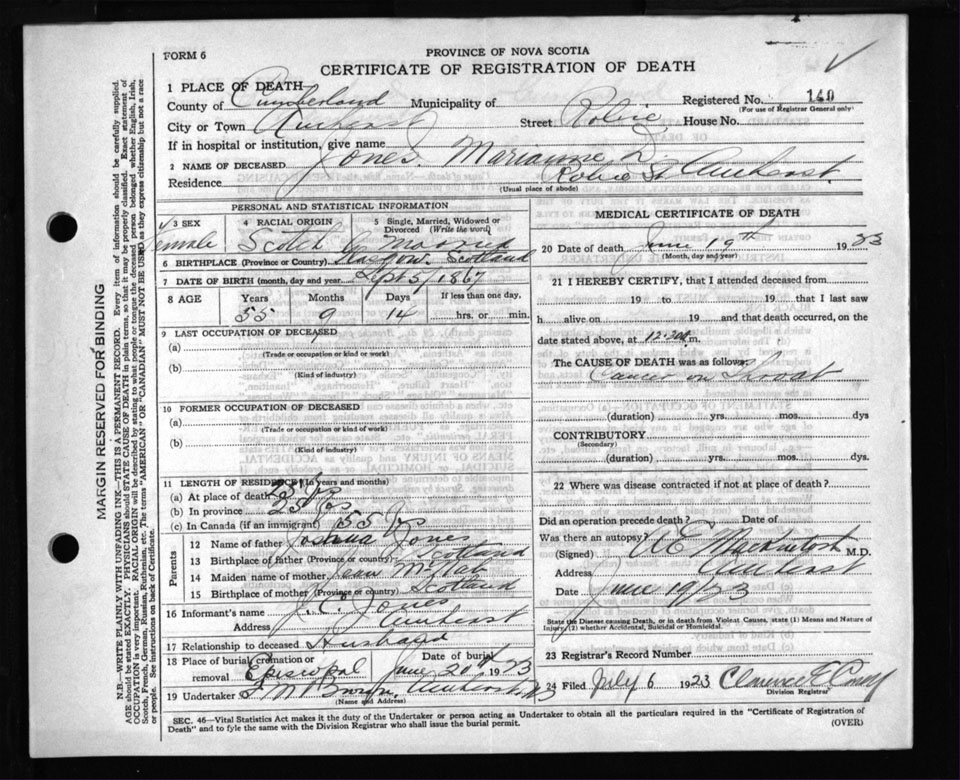 PROVINCE OF NOVA SCOTIA
FORM 6
CERTIFICATE OF REGISTRATION OF DEATH
1 PLACE OF DEATH
County of Cumberland Municipality of Registered No. 140
(For use of Registrar General only)
City or Town Amherst Street Robie House No.
If in hospital or institution, give name
2 NAME OF DECEASED Jones, Marianne D
Residence Robie St Amherst
(Usual place of abode)
PERSONAL AND STATISTICAL INFORMATION
3 SEX Female
4 RACIAL ORIGIN Scotch
5 Single, Married, Widowed or Divorced (Write the word) Married
6 BIRTHPLACE (Province or Country) Glasgow Scotland
7 DATE OF BIRTH (month, day and year) Sept 5/1867
8 AGE Years 55 Months 9 Days 14 If less than one day, hrs. or min.
9 LAST OCCUPATION OF DECEASED
(a)
(Trade or occupation or kind or work)
(b)
(Kind of industry)
10 FORMER OCCUPATION OF DECEASED
(a)
(Trade or occupation or kind of work)
(b)
(Kind of industry)
11 LENGTH OF RESIDENCE (in years and months)
(a) At place of death yrs
(b) In province 25 yrs
(c) In Canada (if an immigrant) 55 yrs
Parents
12 Name of father Joshua Jones
13 Birthplace of father (Province or country) Scotland
14 Maiden name of mother Jean McNab
15 Birthplace of mother (Province or country) Scotland
16 Informant's name J. C. Jones
Address Amherst
17 Relationship to deceased Husband
18 Place of burial, cremation or removal Episcopal Date of burial June 20th 1923
19 Undertaker Brown, Amherst N.S.
(Name and Address)
MEDICAL CERTIFICATE OF DEATH
20 Date of death June 19th 1923
(Month, day and year)
21 I HEREBY CERTIFY, that I attended deceased from
19 to 19 that I last saw
h alive on 19 and that death occurred, on
date stated above, at 12-30 m.
The CAUSE OF DEATH was as follows:
Cancer in throat
(duration) yrs. mos. dys
CONTRIBUTORY
(Secondary)
(duration) yrs. mos. dys
22 Where was disease contracted if not at place of death?
Did an operation precede death? Date of
Was there an autopsy?
(Signed) A E Mackintosh M.D.
Address Amherst
Date June 19/23
State the Disease causing Death, or in death from Violent Causes, state (1) Means and Nature of
Injury, (2) whether Accidental, Suicidal or Homicidal.
23 Registrar's Record Number
24 Filed July 6 1923 Clarence E
Division Registrar
SEC. 46—Vital Statistics Act makes it the duty of the Undertaker or person acting as Undertaker to obtain all the particulars required in the "Certificate of Registration of
Death" and to fyle the same with the Division Registrar who shall issue the burial permit. (OVER)
MARGIN RESERVED FOR BINDING
N.B.—WRITE PLAINLY WITH UNFADING INK—THIS IS A PERMANENT RECORD. Every item of information should be carefully supplied.
AGE should be stated EXACTLY. PHYSICIANS should STATE CAUSE OF DEATH in plain terms, so that it may be properly classified. Exact statement of
OCCUPATION is very important. RACIAL ORIGIN will be described by stating to what people or tongue the deceased person belonged whether English, Irish,
Scotch, French, German, Russian, Ruthenian, etc. The terms "AMERICAN" OR "CANADIAN" MUST NOT BE USED as they express citizenship but not a race
or people. See instructions on back of Certificate.